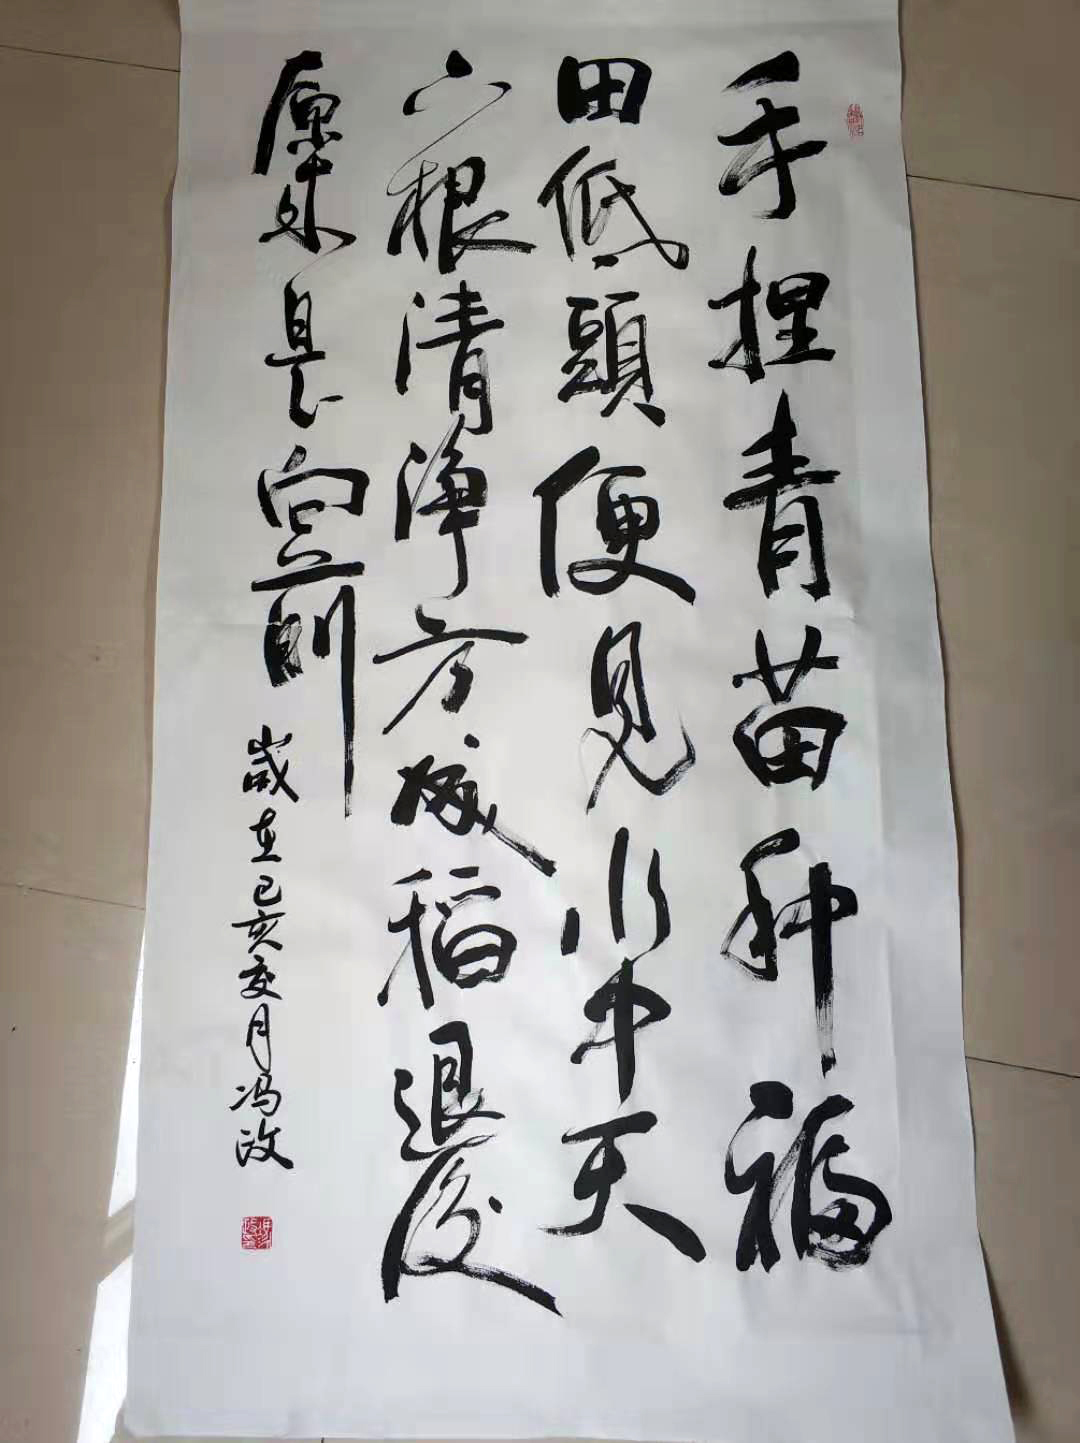 手捏青苗种福
田低頭便見水中天
六根清净方成稻退後
原来是向前
歲在己亥夏月冯改